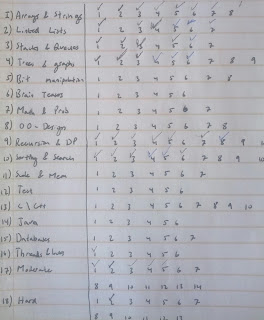 1) Arrays & Strings 1 2 3 4 5 6 7 8
2) Linked Lists 1 2 3 4 5 6 7
3) Stacks & Queues 1 2 3 4 5 6 7
4) Trees & graphs 1 2 3 4 5 6 7 8 9
5) Bit manipulation 1 2 3 4 5 6 7 8
6) Brain Teasers 1 2 3 4 5 6
7) Math & Prob 1 2 3 4 5 6 7
8) OO-Design 1 2 3 4 5 6 7 8
9) Recursion & DP 1 2 3 4 5 6 7 8 9
10) Sorting & Search 1 2 3 4 5 6 7 8 9
11) Scale & Mem 1 2 3 4 5 6 7
12) Test 1 2 3 4 5 6
13) C \ C++ 1 2 3 4 5 6 7 8 9 10
14) Java 1 2 3 4 5 6
15) Databases 1 2 3 4 5 6 7
16) Threads & 1 2 3 4 5 6
17) Moderate 1 2 3 4 5 6 7
8 9 10 11 12 13 14
18) Hard 1 2 3 4 5 6 7
8 9 10 11 12 13